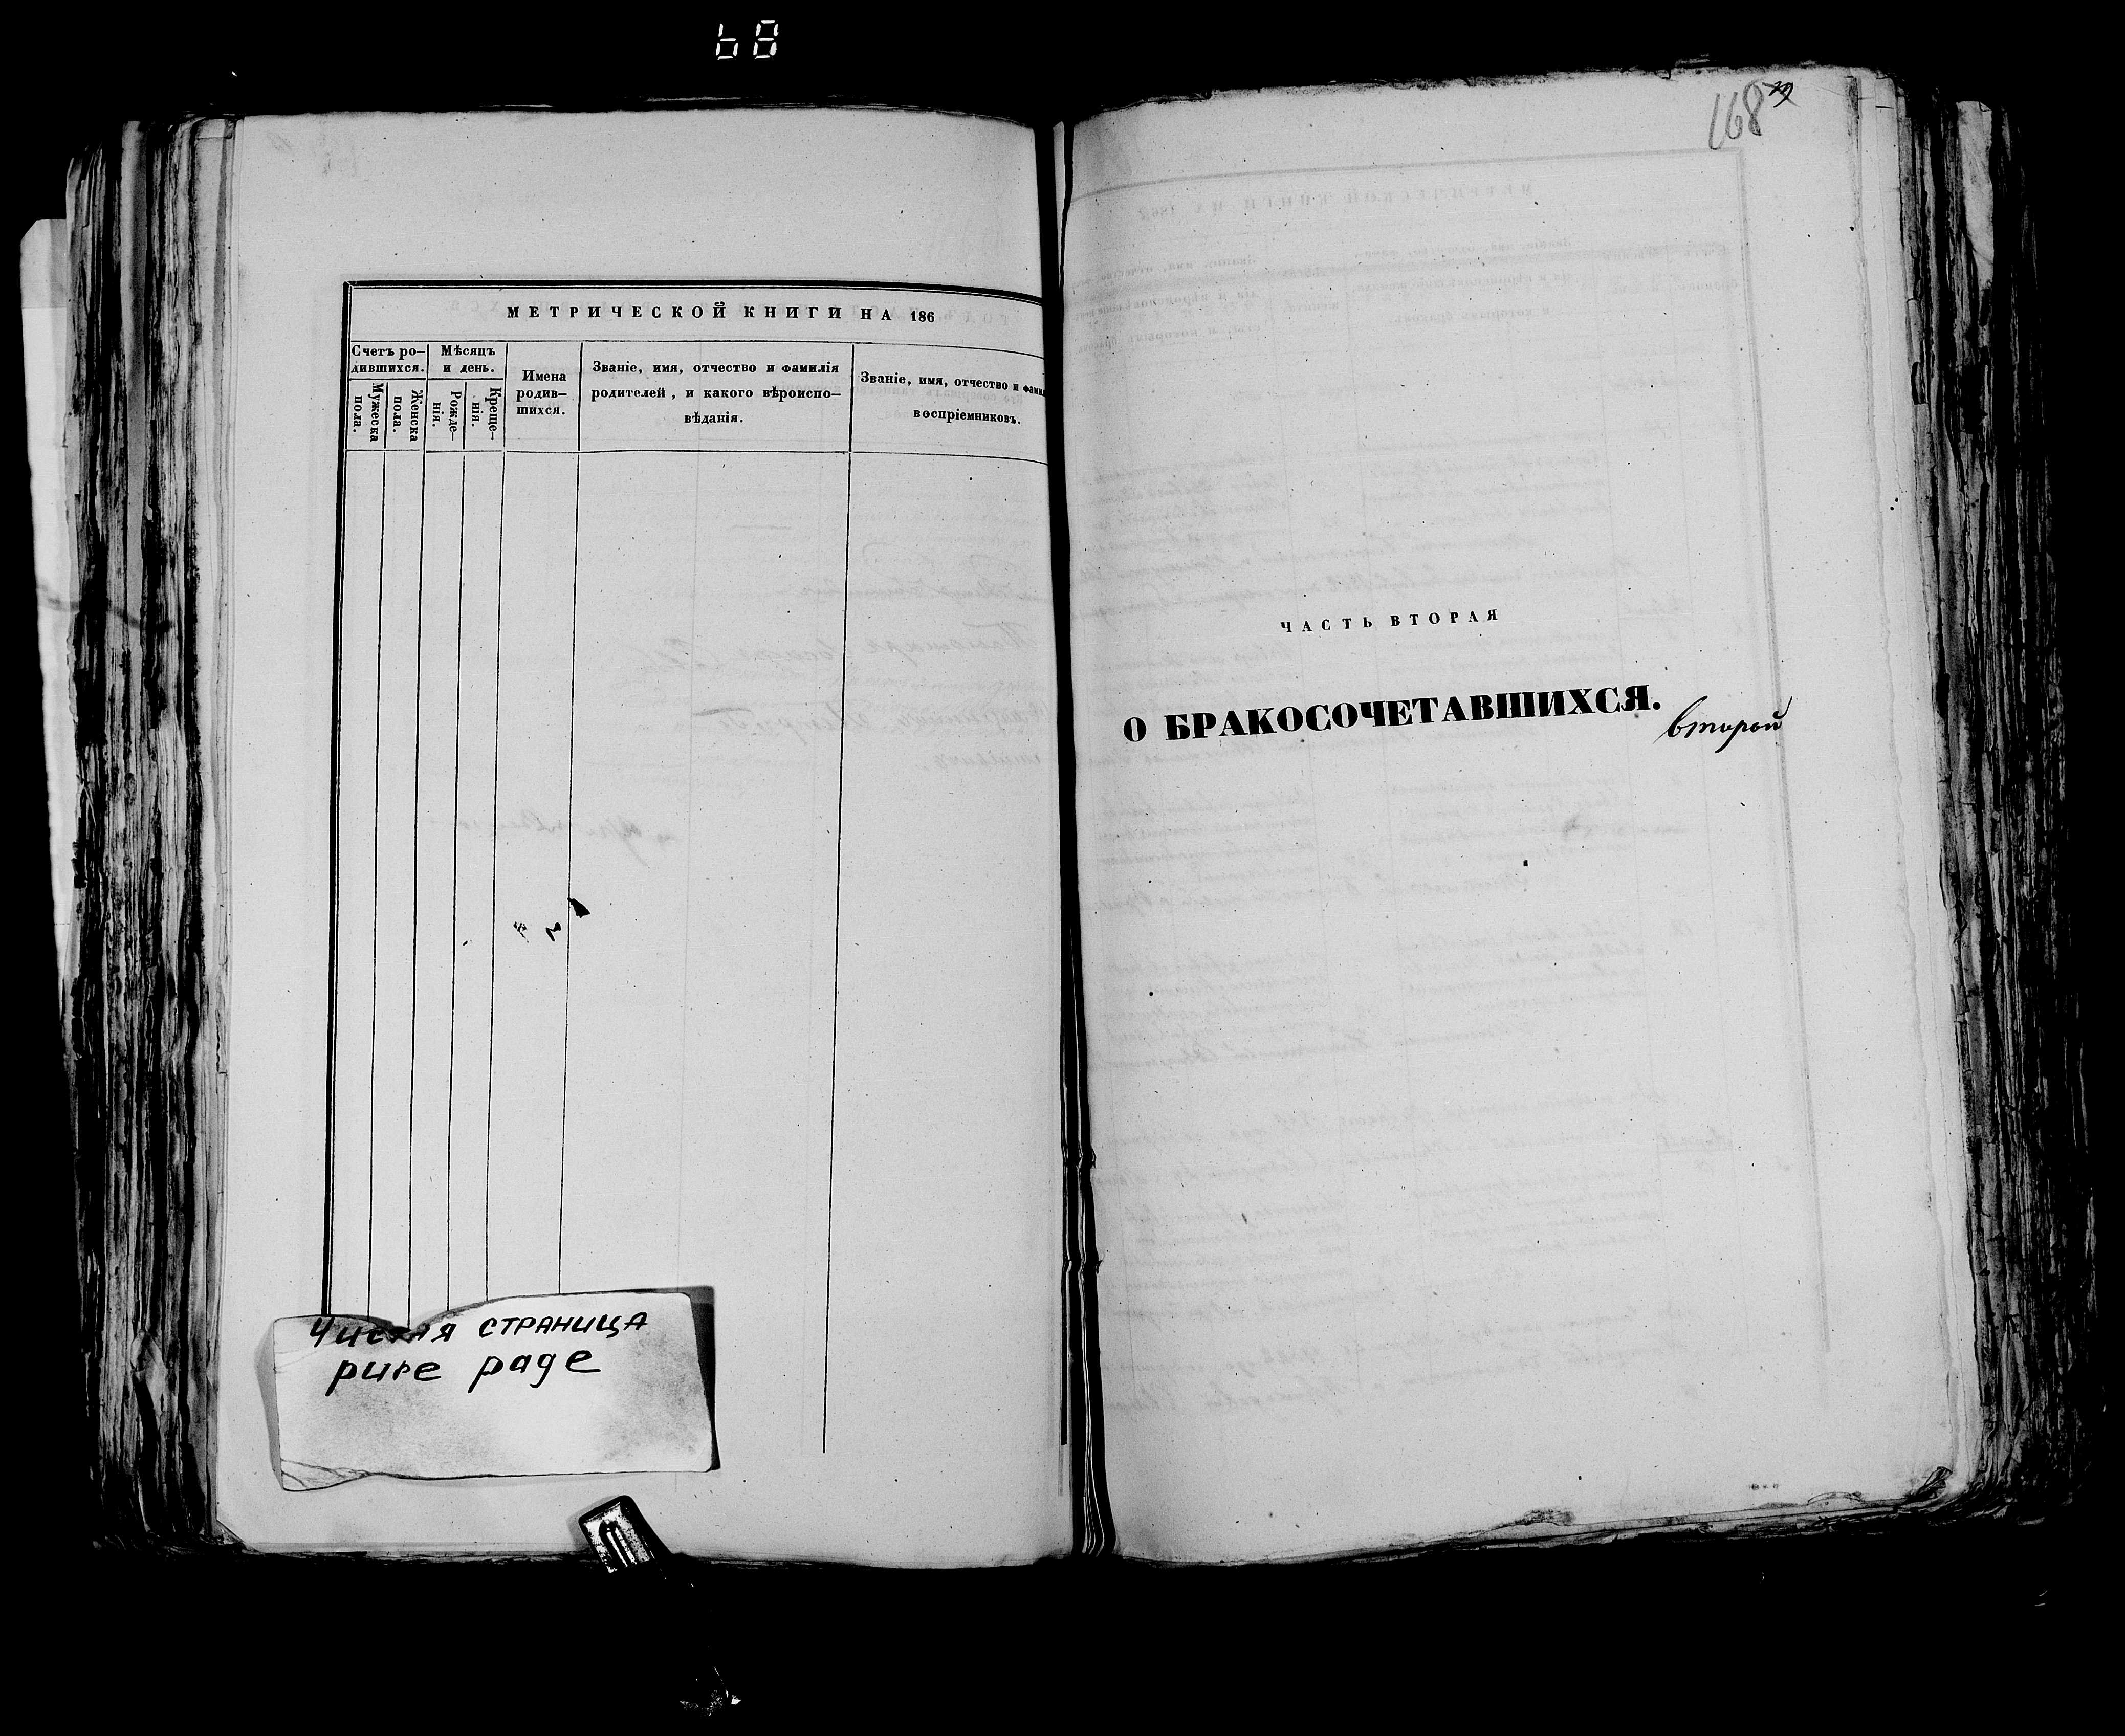 68
МЕТРИЧЕСКОЙ КНИГИ НА 186
Счетъ ро-
дившихся.
Мужеска
пола.
Женска
пола.
Мѣсяцъ
и день.
Рожде-
нія.
Креще-
нія.
Имена
родив-
шихся.
Званіе, имя, отчество и фамилія
родителей, и какого вѣроиспо-
вѣданія.
Званіе, имя, отчество и фами
воспріемниковъ.
Чистая страница
pure page
168
ЧАСТЬ ВТОРАЯ
О БРАКОСОЧЕТАВШИХСЯ.
второй